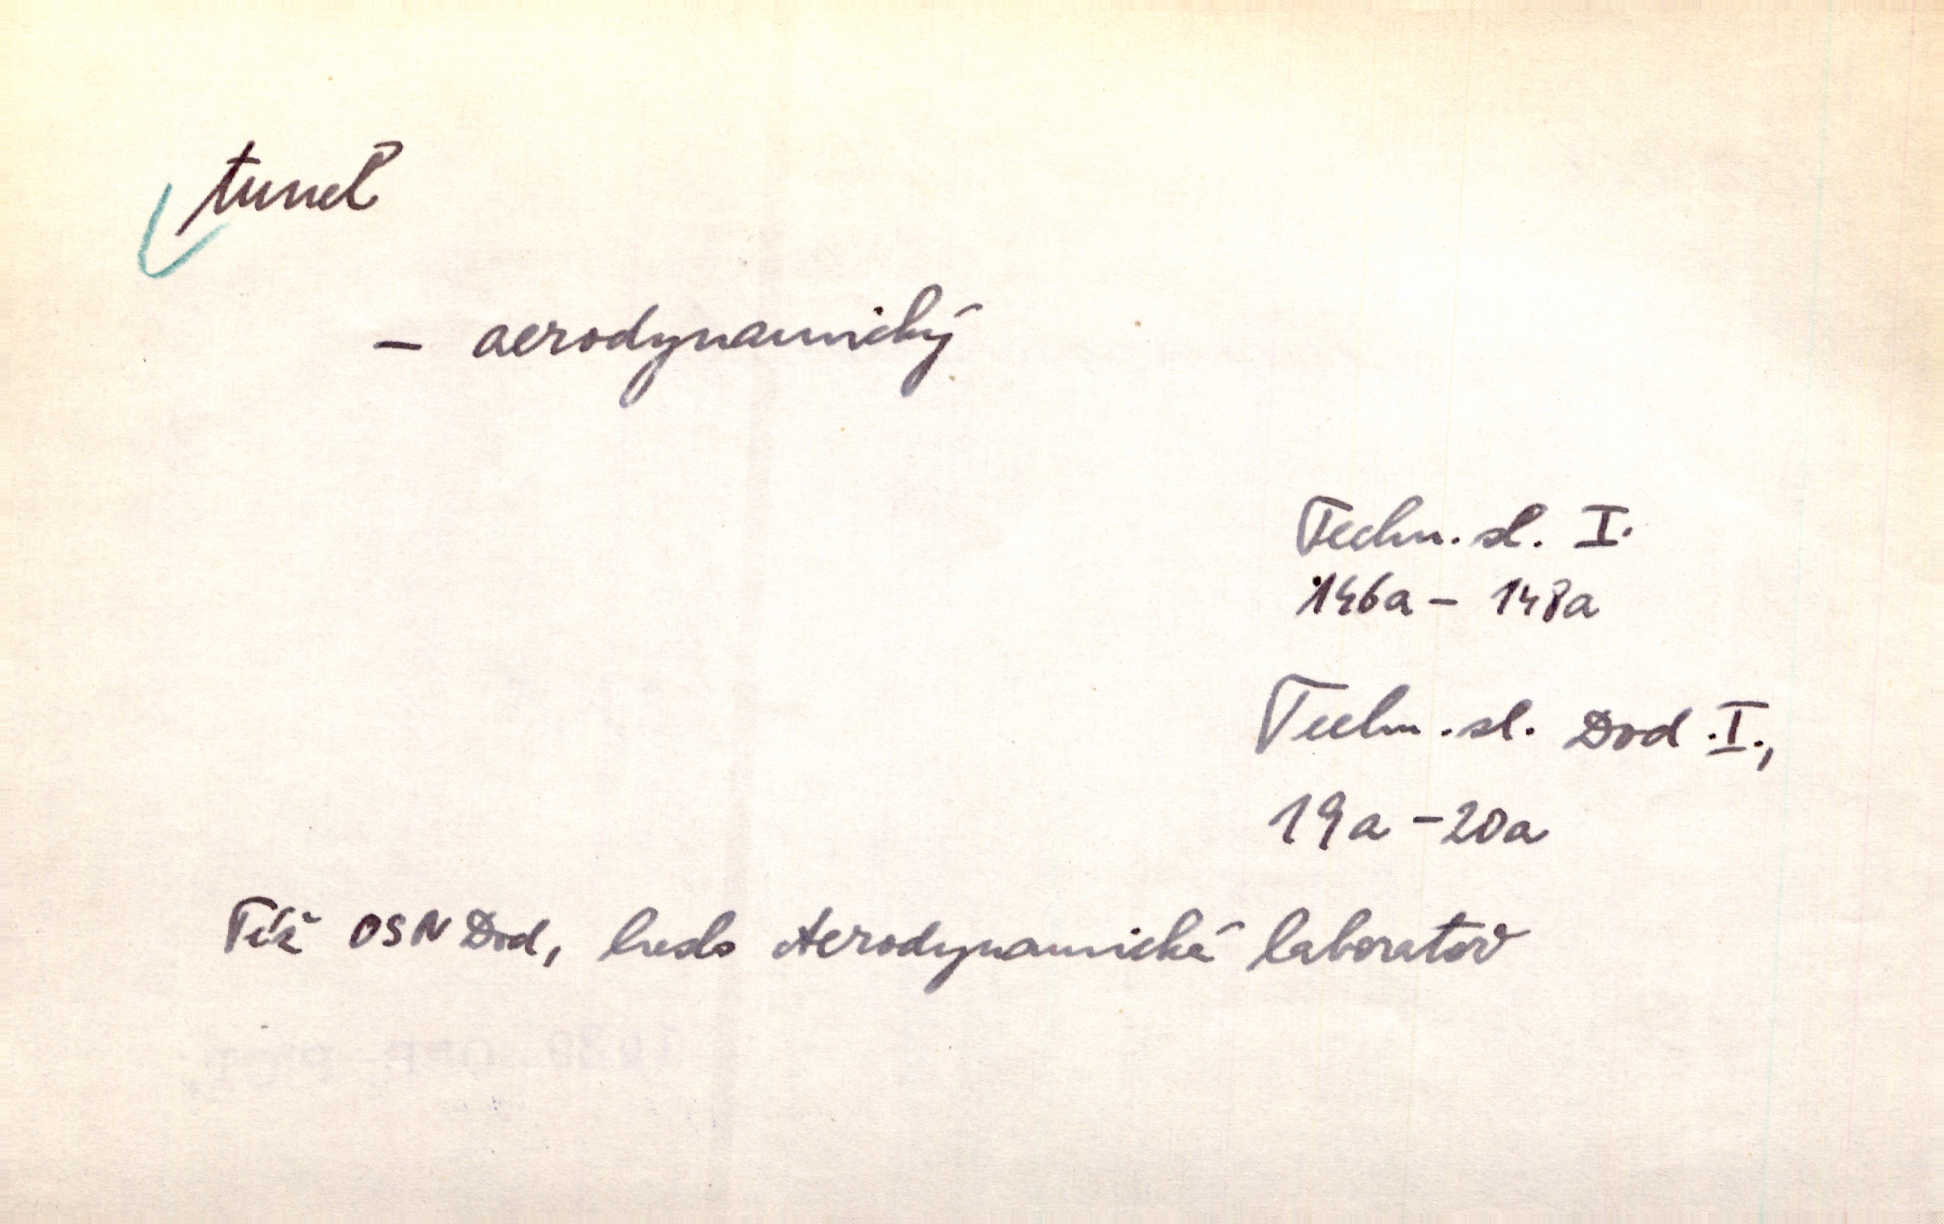 tunel
– aerodynamický
Techn. sl. I.
146a – 148a
Techn. sl. Dod. I.,
19a – 20a
Též OSN Dod, heslo Aerodynamická laboratoř